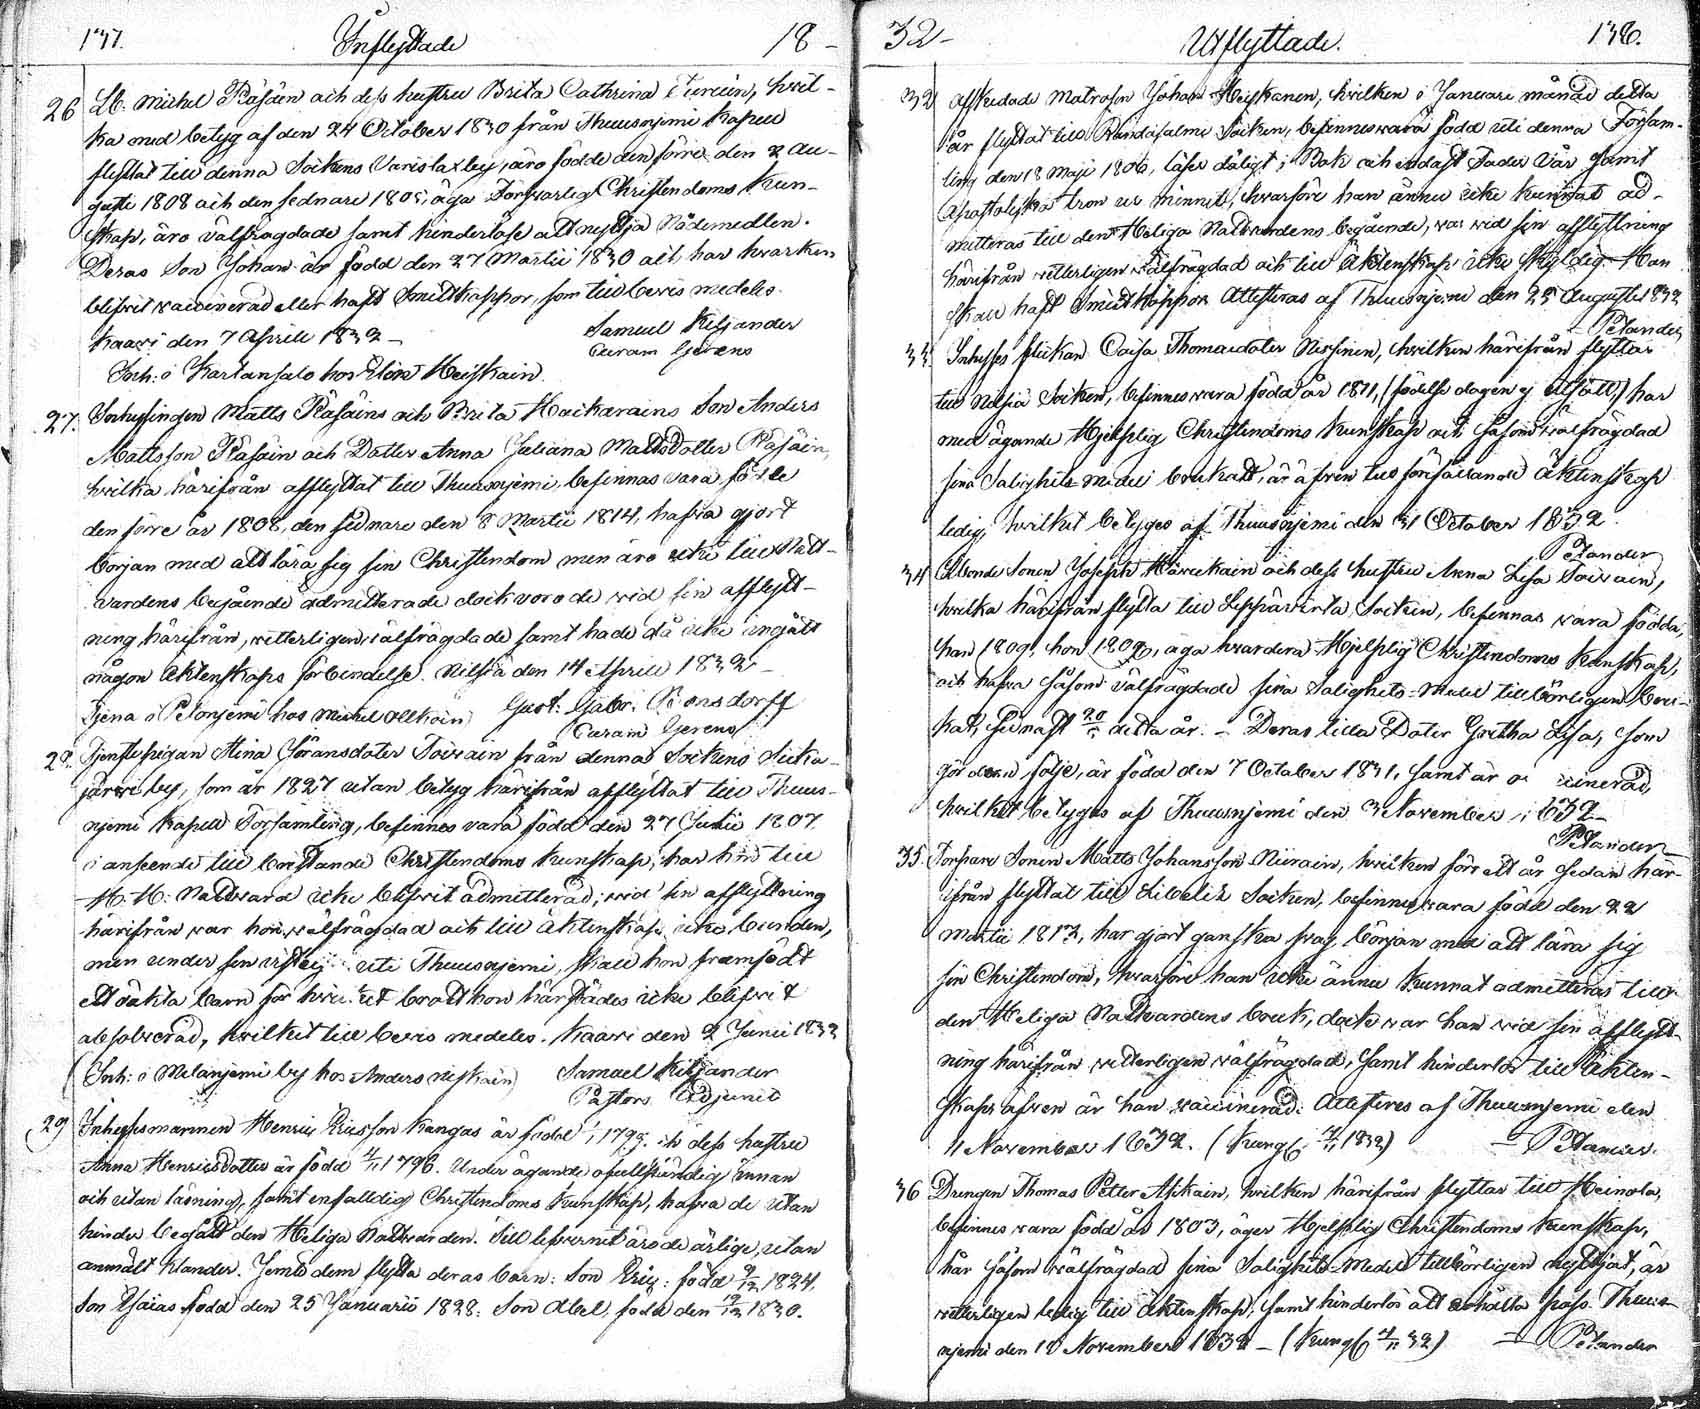 137. Inflyttade 18-
26 Lt. Michel Räsäin och dess hustru Brita Cathrina Turuin, hvil-
ka med betyg af den 24 October 1830 från Thuusnjemi Kapell
flyttat till denna Sockens Varislax by, äro födde den förre den 2 Au-
gusti 1808 och den sednare 1805, äga Försvarlig Christendoms Kun-
skap, äro välfrägdade samt hinderlöse att nyttja Nådemedlen.
Deras Son Johan är född den 27 Martii 1830 och har hvarken
blifvit vaccinerad eller haft Smittkoppor, som till bevis medeles.
Kaavi den 7 Aprill 1832 - Samuel Kiljander
Curam Gerens
Inh: i Kartansalo hos Heiskain
27. Inhysingen Matts Räsäins och Brita Son Anders
Mattsson Räsäin och Dotter Anna Juliana Mattsdotter Räsäin,
hvilka härifrån afflyttat till Thuusnjemi, befinnas vara födde
den förre år 1808, den sednare den 8 Martii 1814, hafva gjort
början med att lära sig sin Christendom men äro icke till Natt-
vardens begående admitterade dock voro de vid sin afflytt-
ning härifrån, vetterligen välfrägdade samt hade då icke ingått
någon Äktenskaps förbindelse. Nilsiä den 14 Aprill 1832 -
Tjena i Petonjemi hos Michel Gust: Gabr: Ronsdorff
Curam Gerens
28. Tjenstepigan Stina Göransdoter Toivain från denna Sockens Sicka-
järvi by, som år 1827 utan betyg härifrån afflyttat till Thuus-
njemi Kapell Församling, befinnes vara född den 27 Julii 1807.
i anseende till bristande Christendoms kunskap, har hon till
H. H: Nattvard icke blifvit admitterad; vid sin afflyttning
härifrån var hon välfrägdad och till äktenskap icke bunden,
men under sin vistelse uti Thuusnjemi, skall hon framfödt
ett oäkta barn för hvilket brott hon härstädes icke blifvit
absolverad, hvilket till bevis medeles. Kaavi den 2 Junii 1832
(Inh: i Melanjemi by hos Anders Niskain) Samuel Kiljander
Pastors Adjunct
29 Inhysesmannen Henric Ericsson Kangas är född 1799. och dess hustru
Anna Henricsdotter är född 1796. Under ägande ofullständig innan
och utan läsning, samt enfalldig Christendoms kunskap, hafva de utan
hinder begått den Heliga Nattvarden. Till lefvernet äro de ärlige, utan
anmält klander. Jemte dem flytta deras barn: Son Eric: född 1824,
Son Esaias född den 25 Januarii 1828: Son Abel, född den 1830.
32- Utflyttade. 138.
32 Afskedade Matrosen Johan Heiskanen, hvilken i Januari månad detta
år flyttat till Randasalmi Socken, befinnes vara född uti denna Försam-
ling den 18 Maji 1806, läser dåligt; Bok och endast Fader Vår samt
Apostoliska tron ur minnet, hvarföre han ännu icke kunnat ad-
mitteras till den Heliga Nattvardens begående, var vid sin afflyttning
härifrån vetterligen välfrägdad och till Äktenskap icke skyldig. Han
skall haft Smittkoppor. Attesteras af Thuusnjemi den 25 Augusti 1832
- Petander
33. Inhyses flickan Caisa Thomasdoter Nissinen, hvilken härifrån flyttar
till Nilsiä Socken, befinnes vara född år 1811, (födelse dagen ej utsatt) har
med ägande Hjelplig Christendoms Kunskap och såsom välfrägdad
sina Salighets-medel brukadt, är äfven till förefallande Äktenskap
ledig, hvilket betyges af Thuusnjemi den 31 October 1832.
Petander
34 Bonde Sonen Joseph och dess hustru Anna Lisa Toivain,
hvilka härifrån flytta till Leppävirta Socken, befinnas vara födda,
han 1809, hon 1809, äga hvardera Hjelplig Christendoms Kunskap,
och hafva såsom välfrägdade sina Salighets-Medel tillbörligen bru-
kat, sednast detta år. - Deras lilla Doter Gretha Lisa, som
gör dem följe, är född den 7 October 1831, samt är
hvilket betyges af Thuusnjemi den 3 November 1832 -
Petander
35. Torpare Sonen Matts Johansson Niirain, hvilken för ett år sedan här-
ifrån flyttat till Libelits Socken, befinnes vara född den 22
Martii 1813, har gjort ganska svag början med att lära sig
sin Christendom, hvarföre han icke ännu kunnat admitteras till
den Heliga Nattvardens bruk, dock var han vid sin afflytt-
ning härifrån vetterligen välfrägdad, samt hinderlös till Äkten-
skap äfven är han vaccinerad. Attesteres af Thuusnjemi den
4 November 1832. - Petander.
36 Drengen Thomas Petter Asikain, hvilken härifrån flyttar till Heinola,
befinnes vara född år 1803, äger Hjelplig Christendoms kunskap,
har såsom välfrägdad sina Salighets-Medel tillbörligen nyttjat, är
vetterligen ledig till äktenskap, samt hinderlös att erhålla pass. Thuus-
njemi den 18 November 1832 - Petander